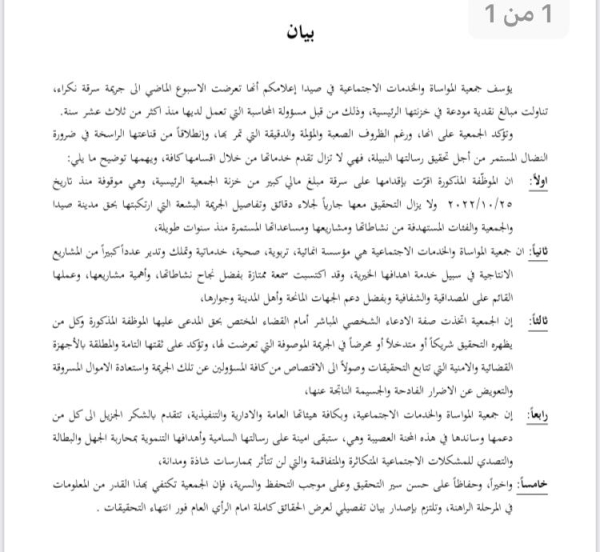 1 من 1
بيان
يؤسف جمعية المواساة والخدمات الاجتماعية في صيدا إعلامكم أنها تعرضت الاسبوع الماضي الى جريمة سرقة نكراء،
تناولت مبالغ نقدية مودعة في خزنتها الرئيسية، وذلك من قبل مسؤولة المحاسبة التي تعمل لديها منذ اكثر من ثلاث عشر سنة.
وتؤكد الجمعية على انها، ورغم الظروف الصعبة والمؤلمة والدقيقة التي تمر بها، وإنطلاقاً من قناعتها الراسخة في ضرورة
النضال المستمر من أجل تحقيق رسالتها النبيلة، فهي لا تزال تقدم خدماتها من خلال اقسامها كافة، ويهمها توضيح ما يلي:
اولاً: ان الموظّفة المذكورة اقرّت بإقدامها على سرقة مبلغ مالي كبير من خزنة الجمعية الرئيسية، وهي موقوفة منذ تاريخ
٢٠٢٢/١٠/٢٥ ولا يزال التحقيق معها جارياً لجلاء دقائق وتفاصيل الجريمة البشعة التي ارتكبتها بحق مدينة صيدا
والجمعية والفئات المستهدفة من نشاطاتها ومشاريعها ومساعداتها المستمرة منذ سنوات طويلة،
ثانياً: ان جمعية المواساة والخدمات الاجتماعية هي مؤسسة انمائية، تربوية، صحية، خدماتية وتملك وتدير عدداً كبيراً من المشاريع
الانتاجية في سبيل خدمة اهدافها الخيرية، وقد اكتسبت سمعة ممتازة بفضل نجاح نشاطاتها، وأهمية مشاريعها، وعملها
القائم على المصداقية والشفافية وبفضل دعم الجهات المانحة وأهل المدينة وجوارها،
ثالثاً: إن الجمعية اتخذت صفة الادعاء الشخصي المباشر أمام القضاء المختص بحق المدعى عليها الموظفة المذكورة وكل من
يظهره التحقيق شريكاً أو متدخلاً أو محرضاً في الجريمة الموصوفة التي تعرضت لها، وتؤكد على ثقتها التامة والمطلقة بالأجهزة
القضائية والامنية التي تتابع التحقيقات وصولاً الى الاقتصاص من كافة المسؤولين عن تلك الجريمة واستعادة الاموال المسروقة
والتعويض عن الاضرار الفادحة والجسيمة الناتجة عنها،
رابعاً: إن جمعية المواساة والخدمات الاجتماعية، وبكافة هيئاتها العامة والادارية والتنفيذية، تتقدم بالشكر الجزيل الى كل من
دعمها وساندها في هذه المحنة العصيبة وهي، ستبقى امينة على رسالتها السامية وأهدافها التنموية بمحاربة الجهل والبطالة
والتصدي للمشكلات الاجتماعية المتكاثرة والمتفاقمة والتي لن تتأثر بممارسات شاذة ومدانة،
خامساً: واخيراً، وحفاظاً على حسن سير التحقيق وعلى موجب التحفظ والسرية، فإن الجمعية تكتفي بهذا القدر من المعلومات
في المرحلة الراهنة، وتلتزم بإصدار بيان تفصيلي لعرض الحقائق كاملة امام الرأي العام فور انتهاء التحقيقات .